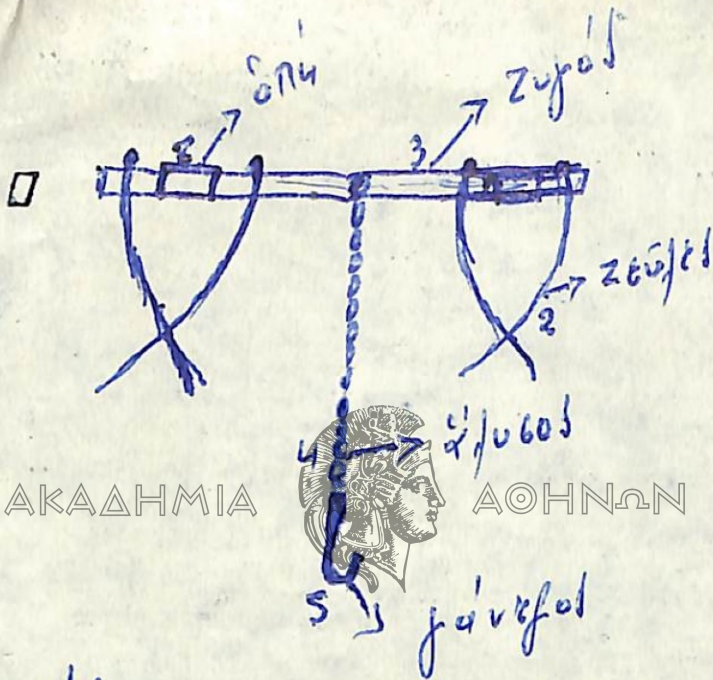 ὀπή
1
3
Ζυγός
Ζεῦλες
2
4
ἅλυσος
ΑΚΑΔΗΜΙΑ
ΑΘΗΝΩΝ
5
γάντζος